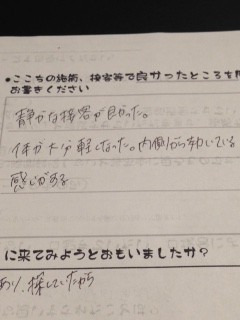 ●ここちの施術、接客等で良かったところを
お書きください
静かな接客が良かった。
体が大分軽くなった。内側から効いている
感じがある
に来てみようとおもいましたか？
あり、探していたから